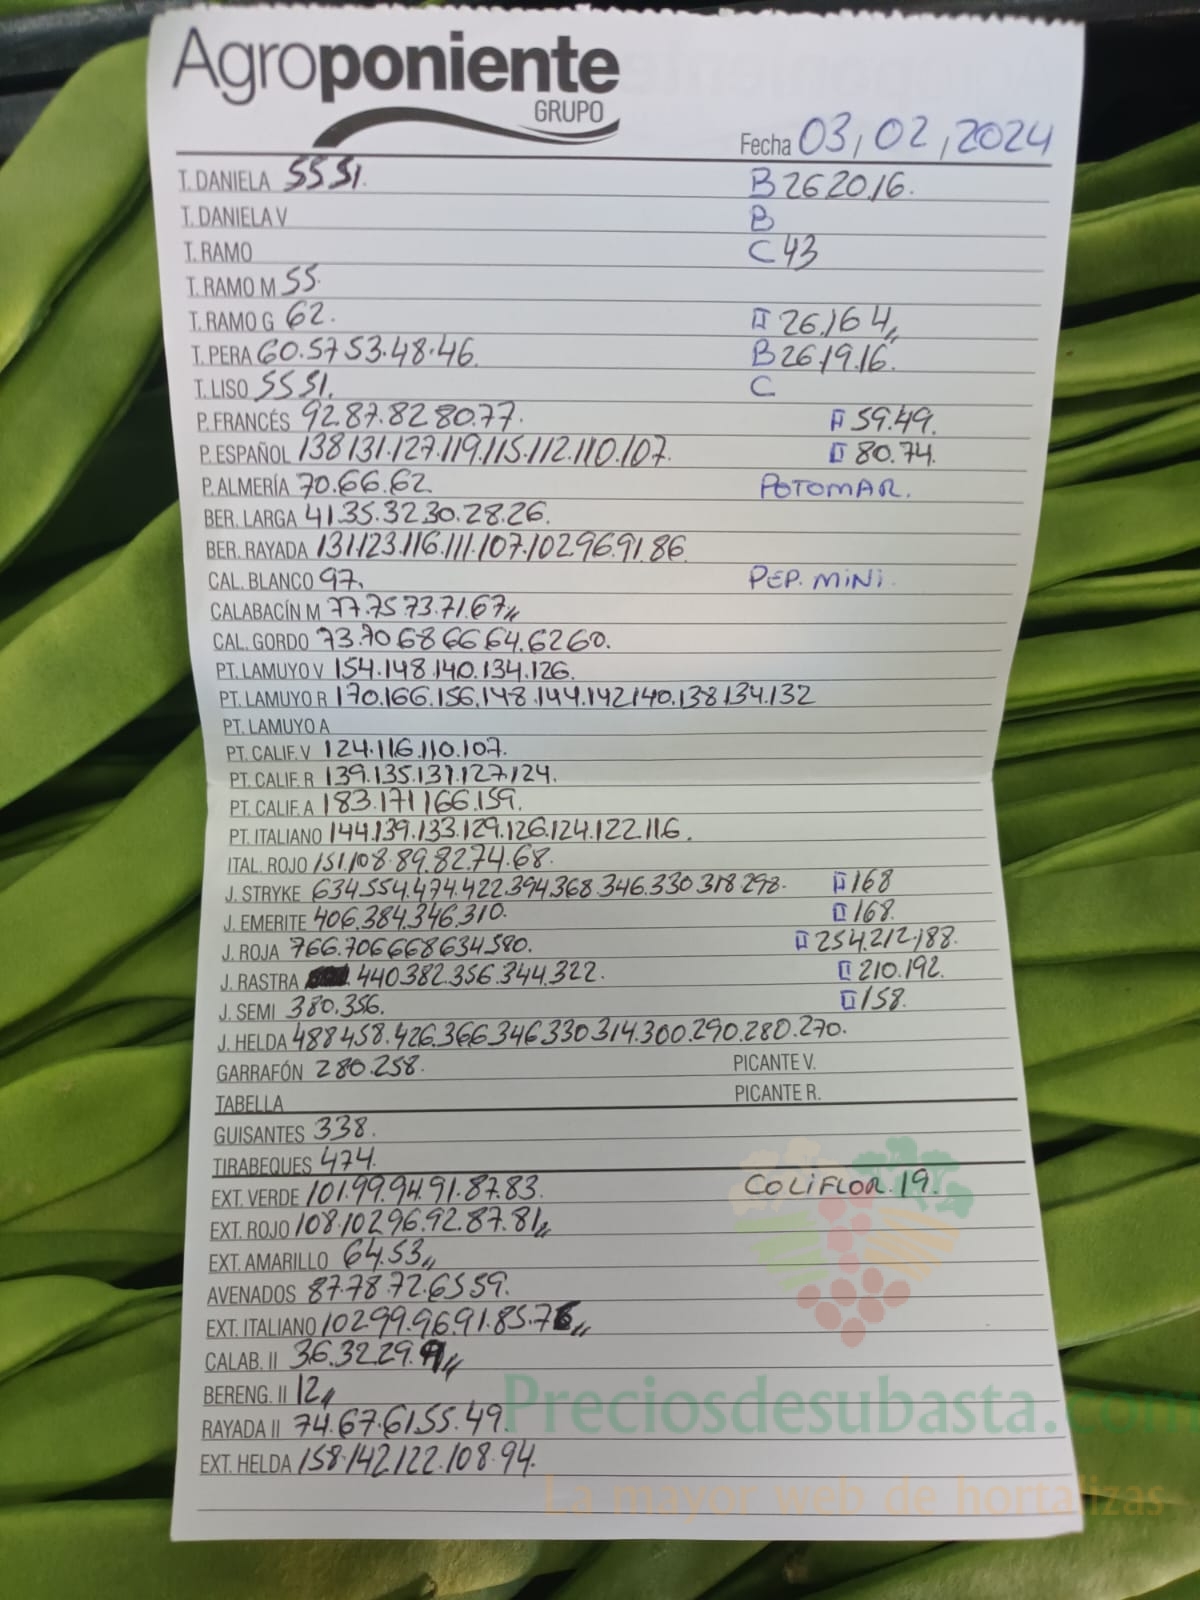 Agroponiente
GRUPO
Fecha 03,02,2024
T. DANIELA 55 51. B 26 20.16.
T. DANIELA V B
T. RAMO C 43
T. RAMO M 55.
T. RAMO G 62. II 26.16 4,,
T. PERA 60.57 53.48.46. B 26.19.16.
T. LISO 55 51. C
P. FRANCÉS 92.87.82 80.77. II 59.49.
P. ESPAÑOL 138 131.127.119.115.112.110.107. II 80.74.
P. ALMERÍA 70.66.62. POTOMAR.
BER. LARGA 41.35.32 30.28.26.
BER. RAYADA 131.123.116.111.107.102 96.91.86.
CAL. BLANCO 97. PEP. MINI.
CALABACÍN M 77.75 73.71.67,,
CAL. GORDO 73.70 68 66 64.62 60.
PT. LAMUYO V 154.148.140.134.126.
PT. LAMUYO R 170.166.156.148.144.142 140.138 134.132
PT. LAMUYO A
PT. CALIF. V 124.116.110.107.
PT. CALIF. R 139.135.131.127.124.
PT. CALIF. A 183.171 166.159.
PT. ITALIANO 144.139.133.129.126.124.122.116.
ITAL. ROJO 151.108.89.82.74.68.
J. STRYKE 634.554.474.422.394.368.346.330 318.298. II 168
J. EMERITE 406.384.346.310. II 168.
J. ROJA 766.706 668 634 580. II 254.212,188.
J. RASTRA 440.382.356.344.322. II 210.192.
J. SEMI 380.356. II 158.
J. HELDA 488 458.426.366.346.330.314.300.290.280.270.
GARRAFÓN 280.258. PICANTE V.
TABELLA PICANTE R.
GUISANTES 338.
TIRABEQUES 474.
EXT. VERDE 101.99.94.91.87.83. COLIFLOR.19.
EXT. ROJO 108.102 96.92.87.81,,
EXT. AMARILLO 64.53,,
AVENADOS 87.78.72.65 59.
EXT. ITALIANO 102 99.96.91.85.76,,
CALAB. II 36.32 29.
BERENG. II 12,,
RAYADA II 74.67.61.55.49.
EXT. HELDA 158.142 122.108.94.
Preciosdesubasta.com
La mayor web de hortalizas